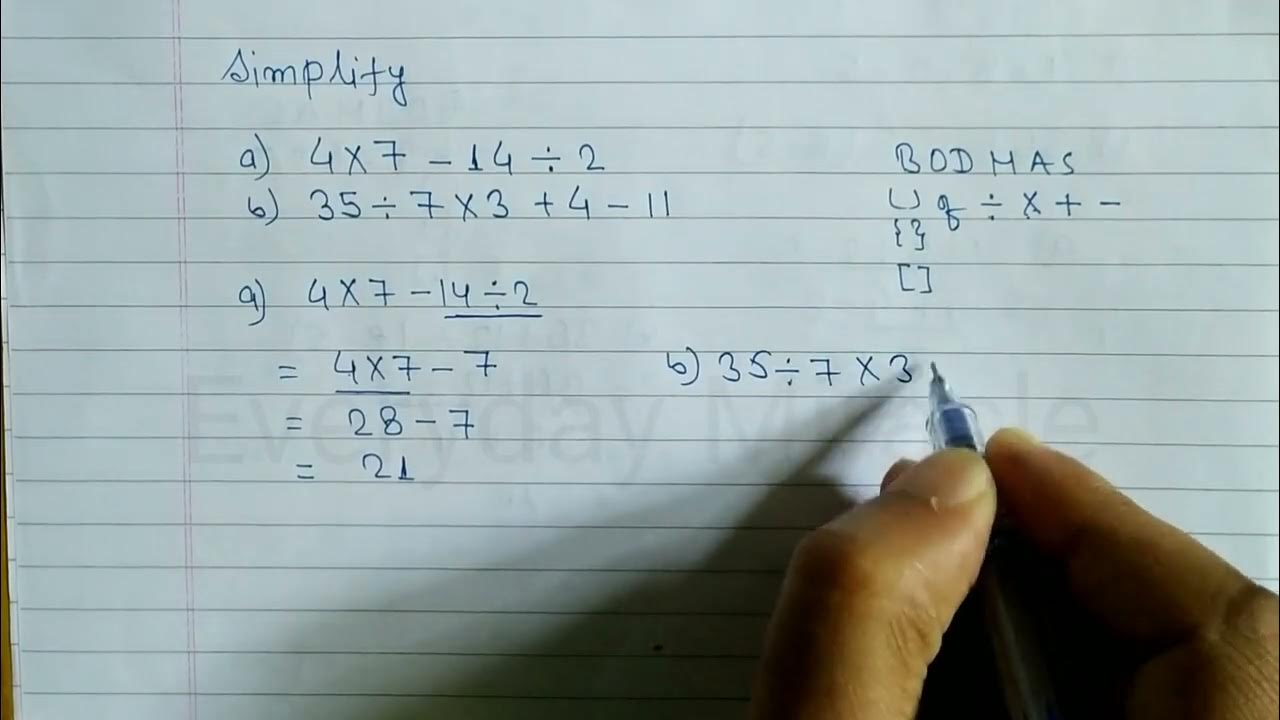 Simplify
a) 4×7 - 14 ÷ 2
b) 35 ÷ 7 × 3 + 4 - 11
BODMAS
() of ÷ × + -
{}
[]
a) 4×7 - 14 ÷ 2
= 4×7 - 7
= 28 - 7
= 21
b) 35 ÷ 7 × 3
Everyday M